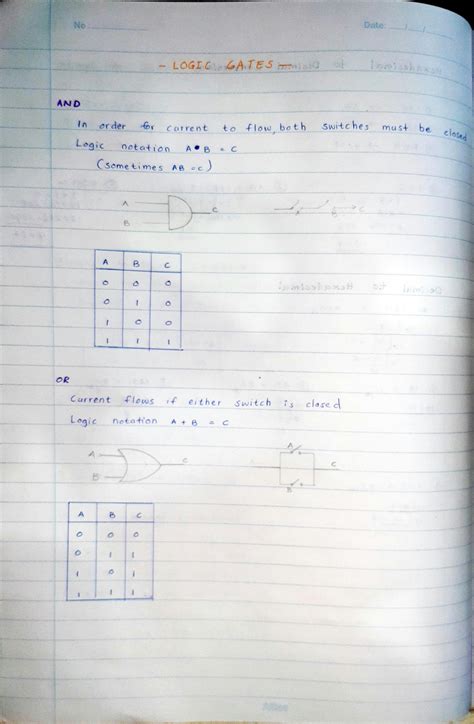 No
Date: / /
- LOGIC GATES -
AND
In order for current to flow, both switches must be closed
Logic notation A • B = C
(sometimes AB = C)
A
B
C
B
C
A B C
0 0 0
0 1 0
1 0 0
1 1 1
OR
Current flows if either switch is closed
Logic notation A + B = C
A
B
C
A
B
C
A B C
0 0 0
0 1 1
1 0 1
1 1 1